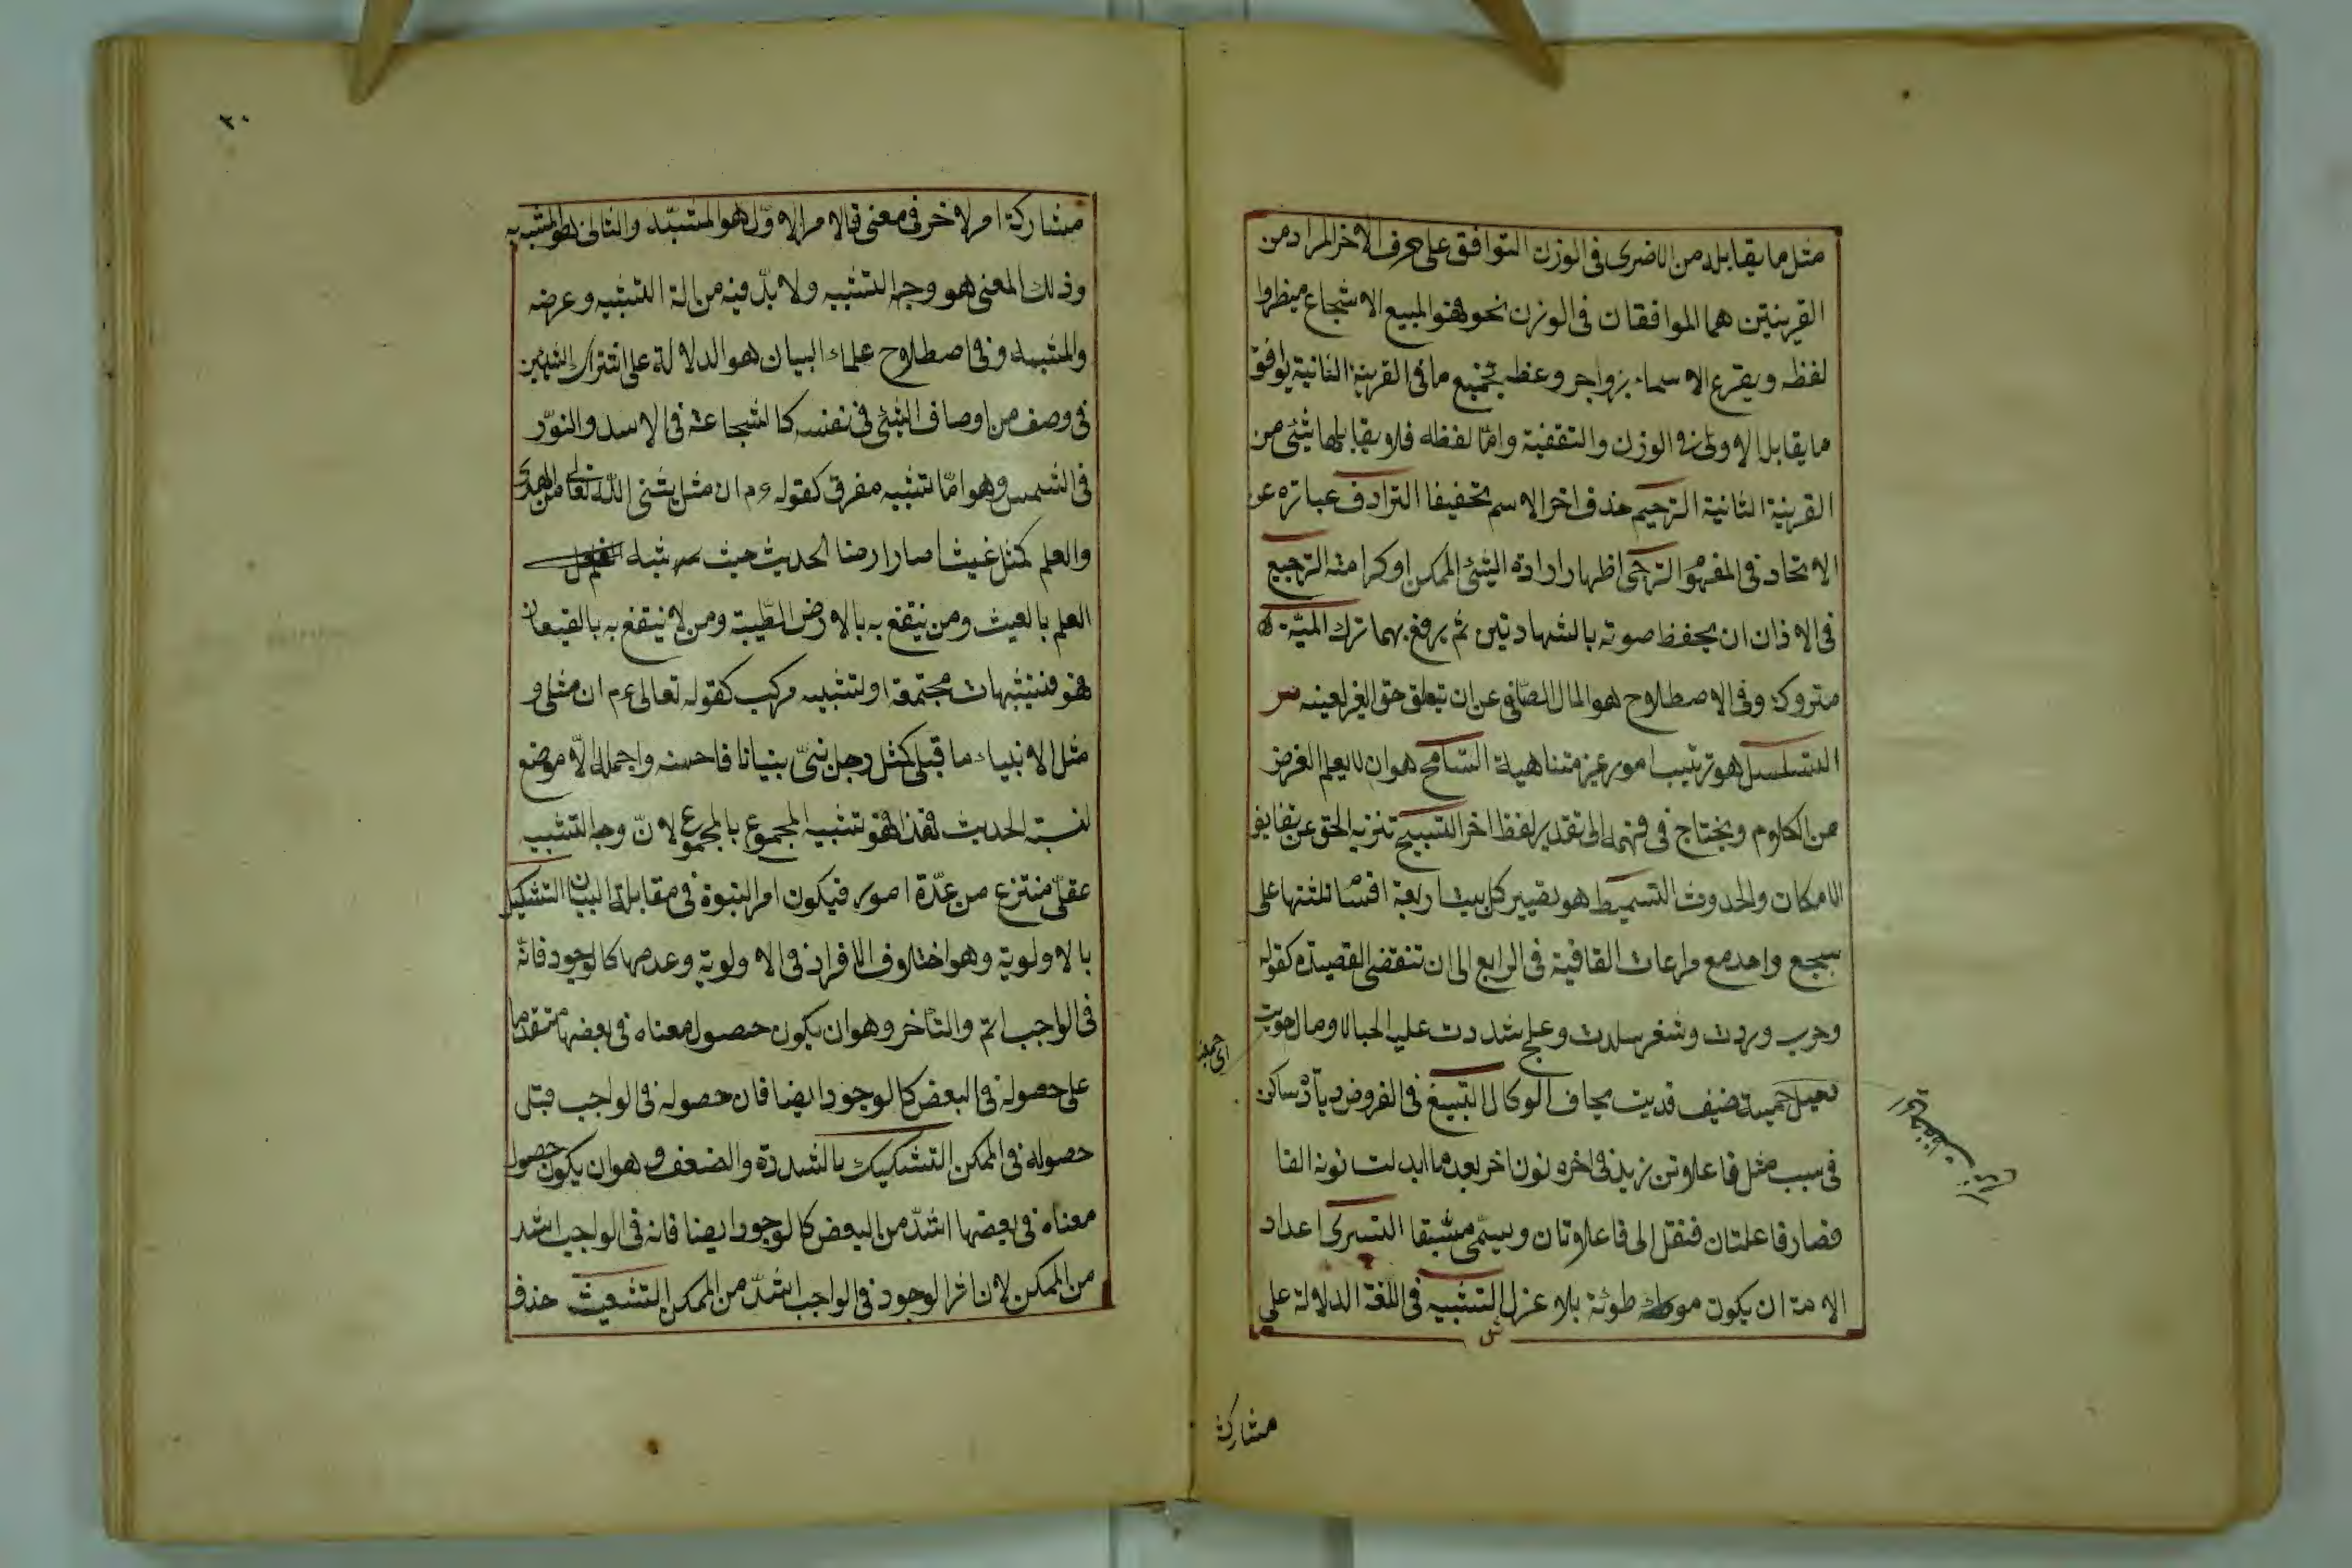 مثل ما يقابله من الاخرى فى الوزن التوافق على حرف الاخر المراد من
القرينتين هما الموافقان فى الوزن نحو فهو المبيع الاشجاع مينظروا
لفظه ويقرع الاسماء بزواجر وعظه فجميع ما فى القرينة الثانية يوافق
ما يقابل الاولى فى الوزن والتقفية وامّا لفظه فلا يقابلها شئ من
القرينة الثانية الترخيم حذف اخر الاسم تخفيفا الترادف عبارة عن
الاتحاد فى المفهوم الترجى اظهار ارادة الشئ الممكن او كراهته الترجيع
فى الاذان ان يخفظ صوته بالشهادتين ثم يرفع بهما تركة الميّت
متروكه وفى الاصطلاح هو المال الصّافى عن ان تتعلق حق الغير لعينه س
التسلسل هو ترتيب امور غير متناهية التسامح هو ان لا يعلم الغرض
من الكلام ويحتاج فى فهمه الى تقدير لفظ اخر التسبيح تنزيه الحق عن نقايض
الامكان والحدوث التسميط هو تصيير كل بيت اربعة اقسام ثلثتها على
سجع واحد مع مراعات القافية فى الرابع الى ان تنقضى القصيدة كقوله
وحرب وردت وشغر سددت وعلج شددت عليه الحبالا ومال حويت
اى جمعت
وخيل حميت وضيف قديت يخاف الوكال التسبيغ فى العروض زيادة ساكن
فى سبب مثل فاعلاتن زيد فى اخره نون اخر بعد ما ابدلت نونه الفا
فصار فاعلتان فنقل الى فاعلاتان ويسمّى مسبّغا التسرى اعداد
الامة ان يكون موطوئة بلا عزل التشبيه فى اللغة الدلالة على
ش
مشاركة
٢٠
مشاركة امر لاخر فى معنى فالامر الاوّل هو المشبّه والثانى هو المشبه به
وذلك المعنى هو وجه التشبيه ولا بدّ فيه من الة التشبيه وغرضه
والمشبه وفى اصطلاح علماء البيان هو الدلالة على اشتراك الشيئين
فى وصف من اوصاف الشئ فى نفسه كالشجاعة فى الاسد والنوّر
فى الشمس وهو امّا تشبيه مفرق كقوله عم ان مثل بعثنى الله تعالى من الهدى
والعلم كمثل غيث اصاب ارضا الحديث حيث شبه
العلم بالغيث ومن ينتفع به بالارض الطيبة ومن لا ينتفع به بالقيعان
فهو تشبيهات مجتمعة او تشبيه مركب كقوله تعالى عم ان مثلى و
مثل الانبياء ما قبلى كمثل رجل بنىّ بنيانا فاحسنه واجمله الّا موضع
لبنة الحديث فهذا هو تشبيه المجموع بالمجموع لانّ وجه التشبيه
عقلىّ منتزع من عدّة امور فيكون امر النبوة فى مقابلة البنيان التشكيك
بالاولوية وهو اختلاف الافراد فى الاولوية وعدمها كالوجود فانّه
فى الواجب اتم والتأخر وهو ان يكون حصول معناه فى بعضها متقدما
على حصوله فى البعض كالوجود ايضا فان حصوله فى الواجب قبل
حصوله فى الممكن التشكيك بالشدة والضعف وهو ان يكون حصول
معناه فى بعضها اشدّ من البعض كالوجود ايضا فانه فى الواجب اشد
من الممكن لان اثر الوجود فى الواجب اشدّ من الممكن التشعيث حذف